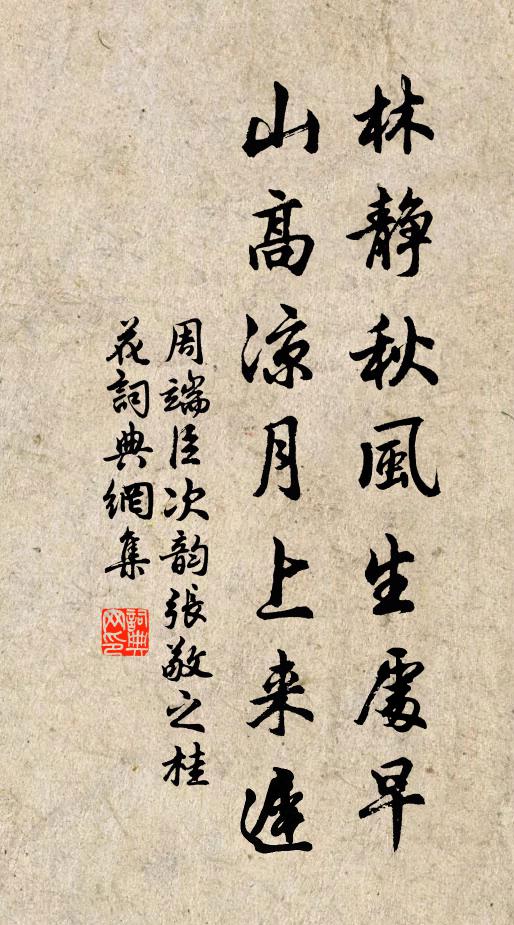 林靜秋風生處早
山高涼月上来遲
周端臣次韵張敬之桂
花詞典網集
詞典
网印